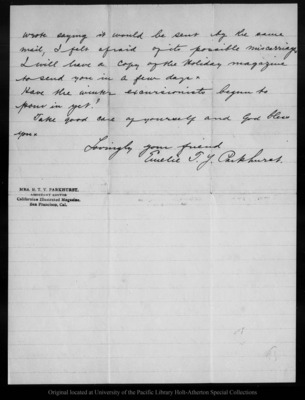 wrote saying it would be sent by the same
mail, I felt afraid of its possible miscarriage
I will have a copy of the Holiday magazine
to send you in a few days.
Have the winter excursionists begun to
pour in yet?
Take good care of yourself and God bless
you.
Lovingly your friend
Emelie T. Y. Parkhurst.
MRS. E. T. Y. PARKHURST,
ASSISTANT EDITOR
Californian Illustrated Magazine,
San Francisco, Cal.
Original located at University of the Pacific Library Holt-Atherton Special Collections